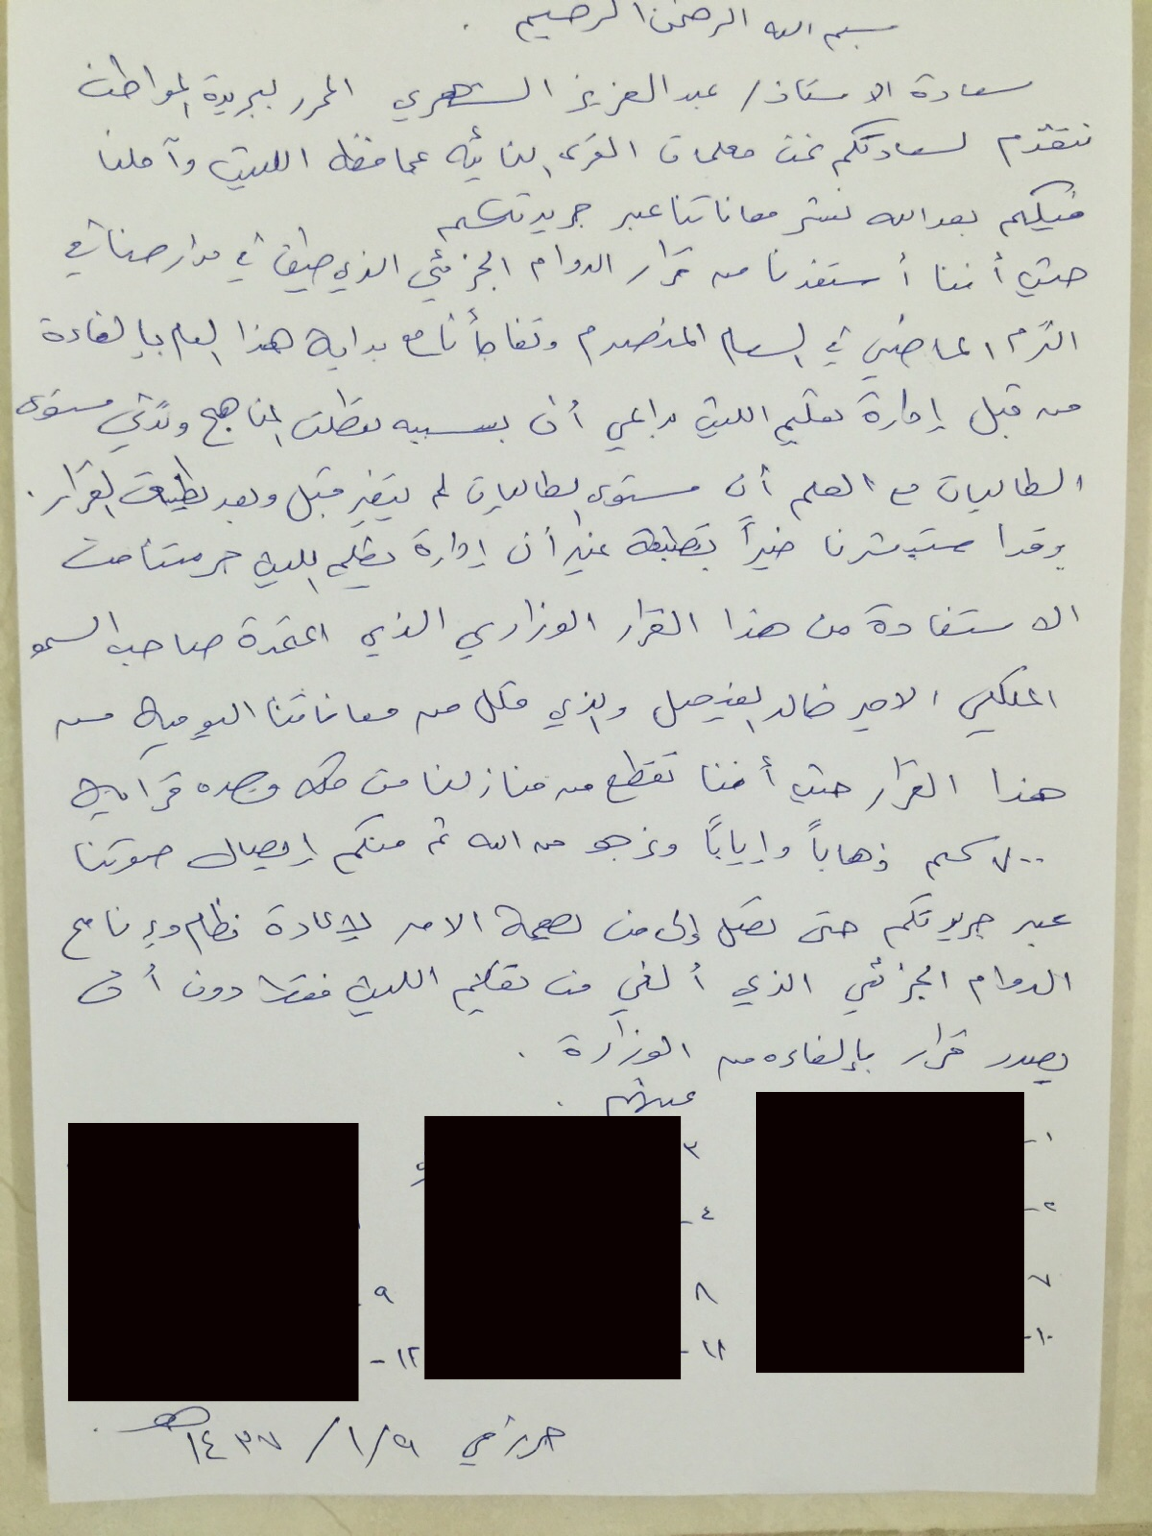 بسم الله الرحمن الرحيم .
سعادة الاستاذ / عبدالعزيز الشهري المحرر لجريدة المواطن
نتقدم لسعادتكم نحن معلمات القرى النائيه بمحافظه الليث وآملنا
فيكم بعدالله نشر معاناتنا عبر جريدتكم
حيث أننا أستفدنا من قرار الدوام الجزئي الذي طبق في مدارسنا في
الترم الماضي في العام المنصرم وتفاجأنا مع بدايه هذا العام بإلغاءة
من قبل إدارة تعليم الليث بداعي أن بسببه تعطلت المناهج وتدني مستوى
الطالبات مع العلم أن مستوى الطالبات لم يتغير قبل وبعد تطبيق القرار .
وقد استبشرنا خيراً بتطبيقه غير أن إدارة تعليم الليث حرمتنا من
الاستفادة من هذا القرار الوزاري الذي اعتمدة صاحب السمو
الملكي الامير خالد الفيصل والذي قلل من معاناتنا اليوميه من
هذا القرار حيث أننا نقطع من منازلنا من مكه وجده قرابه
٧٠٠ كم ذهاباً وإياباً ونرجو من الله ثم منكم إيصال صوتنا
عبر جريدتكم حتى تصل إلى من يهمه الامر لإعادة نظام وبرنامج
الدوام الجزئي الذي ألغي من تعليم الليث فقط دون أن
يصدر قرار بإلغاءه من الوزارة .
عنهم .
١-
٣
٢-
٤-
٧
٨
٩
١٠-
١١-
١٢-
حرر في ٩/١/١٤٣٧هـ .